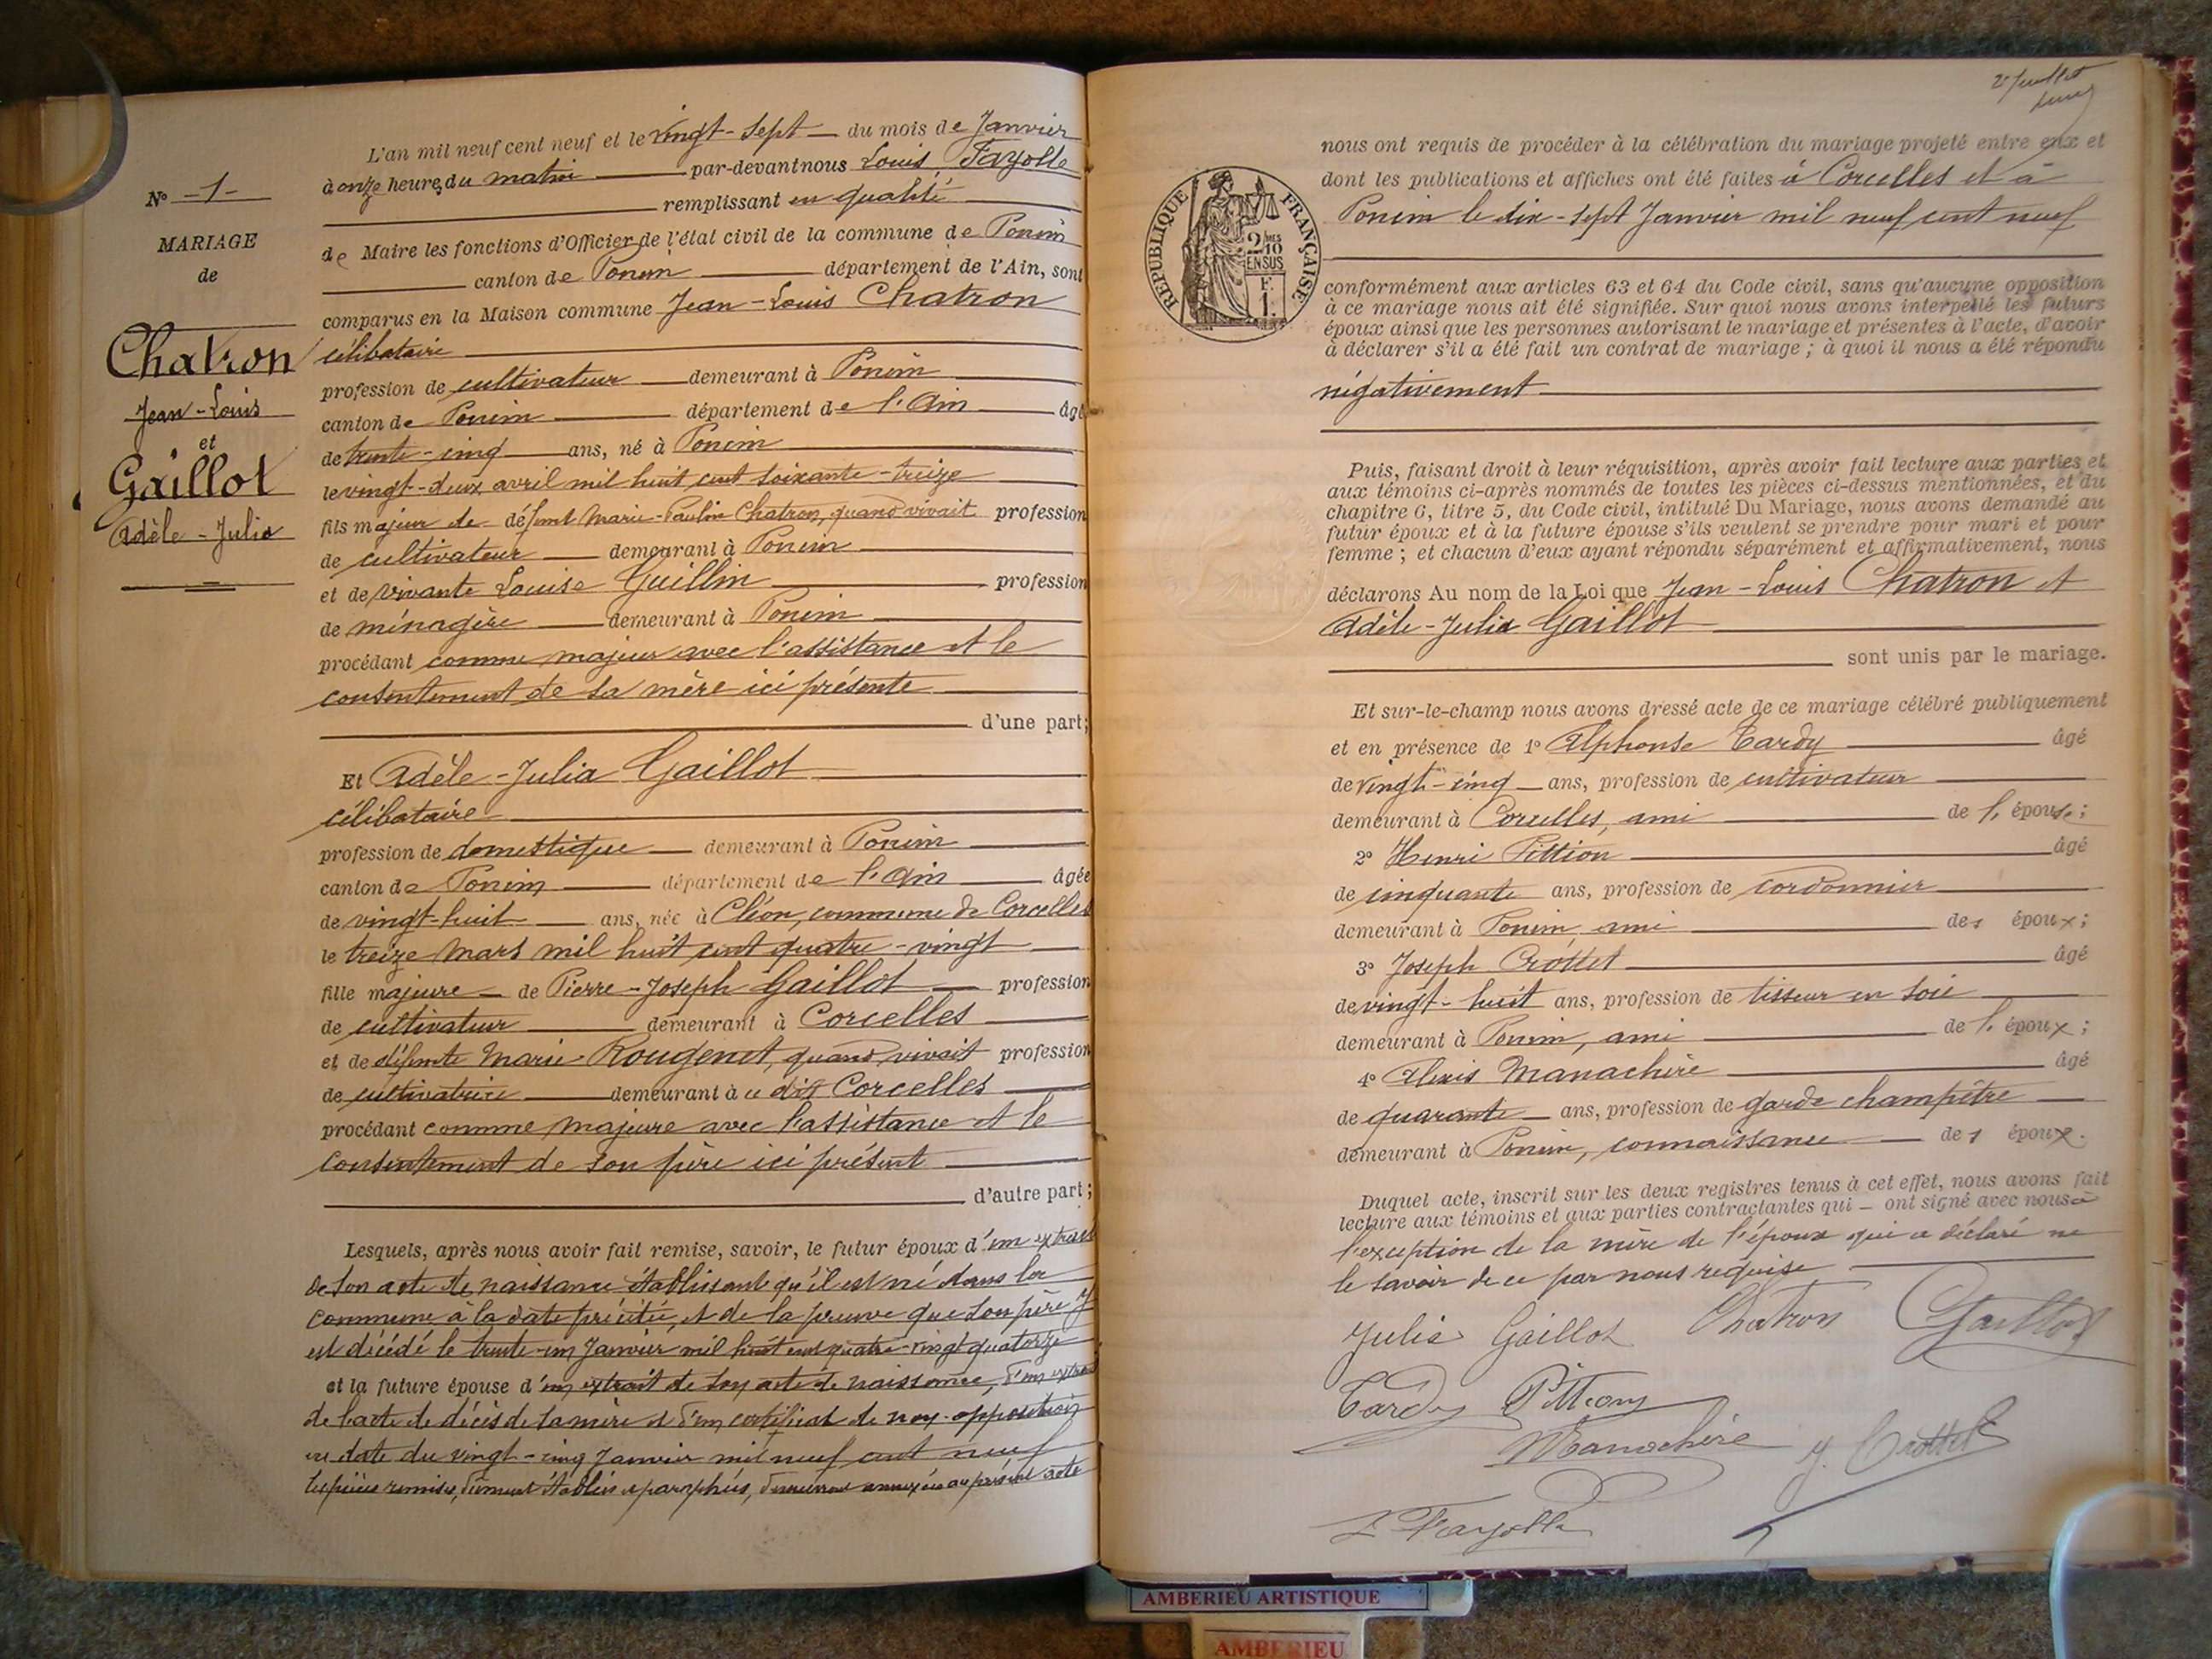 N° -1-
MARIAGE
de
Chatron
Jean-Louis
et
Gaillot
Adèle-Julia
L'an mil neuf cent neuf et le vingt-sept du mois de Janvier
à onze heures du matin par-devant nous Louis Fayolle
remplissant en qualité
de Maire les fonctions d'Officier de l'état civil de la commune de Poncin
canton de Poncin département de l'Ain, sont
comparus en la Maison commune Jean-Louis Chatron
célibataire
profession de cultivateur demeurant à Poncin
canton de Poncin département de l'Ain âgé
de trente-cinq ans, né à Poncin
le vingt-deux avril mil huit cent soixante-treize
fils majeur de défunt Marie-Paulin Chatron, quand vivait profession
de cultivateur demeurant à Poncin
et de vivante Louise Guillin profession
de ménagère demeurant à Poncin
procédant comme majeur avec l'assistance et le
consentement de sa mère ici présente
d'une part;
Et Adèle-Julia Gaillot
célibataire
profession de domestique demeurant à Poncin
canton de Poncin département de l'Ain âgée
de vingt-huit ans, née à Cléon, commune de Corcelles
le treize Mars mil huit cent quatre-vingt
fille majeure de Pierre-Joseph Gaillot profession
de cultivateur demeurant à Corcelles
et de défunte Marie Rougenet, quand vivait profession
de cultivatrice demeurant à ce dit Corcelles
procédant comme majeure avec l'assistance et le
consentement de son père ici présent
d'autre part;
Lesquels, après nous avoir fait remise, savoir, le futur époux d'un extrait
de son acte de naissance établissant qu'il est né dans la
commune à la date précitée, et de la preuve que son père y
est décédé le trente-un Janvier mil huit cent quatre-vingt quatorze
et la future épouse d'un extrait de son acte de naissance, d'un extrait
de l'acte de décès de sa mère et d'un certificat de non-opposition
en date du vingt-cinq Janvier mil neuf cent neuf
les pièces remises, dûment établies et paraphées, demeureront annexées au présent acte
2e feuillet
RÉPUBLIQUE FRANÇAISE
2/10 MES
EN SUS
F.
1.
nous ont requis de procéder à la célébration du mariage projeté entre eux et
dont les publications et affiches ont été faites à Corcelles et à
Poncin le dix-sept Janvier mil neuf cent neuf
conformément aux articles 63 et 64 du Code civil, sans qu'aucune opposition
à ce mariage nous ait été signifiée. Sur quoi nous avons interpellé les futurs
époux ainsi que les personnes autorisant le mariage et présentes à l'acte, d'avoir
à déclarer s'il a été fait un contrat de mariage; à quoi il nous a été répondu
négativement
Puis, faisant droit à leur réquisition, après avoir fait lecture aux parties et
aux témoins ci-après nommés de toutes les pièces ci-dessus mentionnées, et du
chapitre 6, titre 5, du Code civil, intitulé Du Mariage, nous avons demandé au
futur époux et à la future épouse s'ils veulent se prendre pour mari et pour
femme; et chacun d'eux ayant répondu séparément et affirmativement, nous
déclarons Au nom de la Loi que Jean-Louis Chatron et
Adèle-Julia Gaillot
sont unis par le mariage.
Et sur-le-champ nous avons dressé acte de ce mariage célébré publiquement
et en présence de 1° Alphonse Tardy âgé
de vingt-cinq ans, profession de cultivateur
demeurant à Corcelles, ami de l'épouse;
2° Henri Pittion âgé
de cinquante ans, profession de cordonnier
demeurant à Poncin, ami des époux;
3° Joseph Crottet âgé
de vingt-huit ans, profession de tisseur en soie
demeurant à Poncin, ami de l'époux;
4° Alexis Manachère âgé
de quarante ans, profession de garde champêtre
demeurant à Poncin, connaissance des époux.
Duquel acte, inscrit sur les deux registres tenus à cet effet, nous avons fait
lecture aux témoins et aux parties contractantes qui ont signé avec nous à
l'exception de la mère de l'époux qui a déclaré ne
le savoir de ce par nous requise
Julie Gaillot Chatron Gaillot
Tardy Pittion
Manachère J. Crottet
L Fayolle
AMBERIEU ARTISTIQUE
AMBERIEU